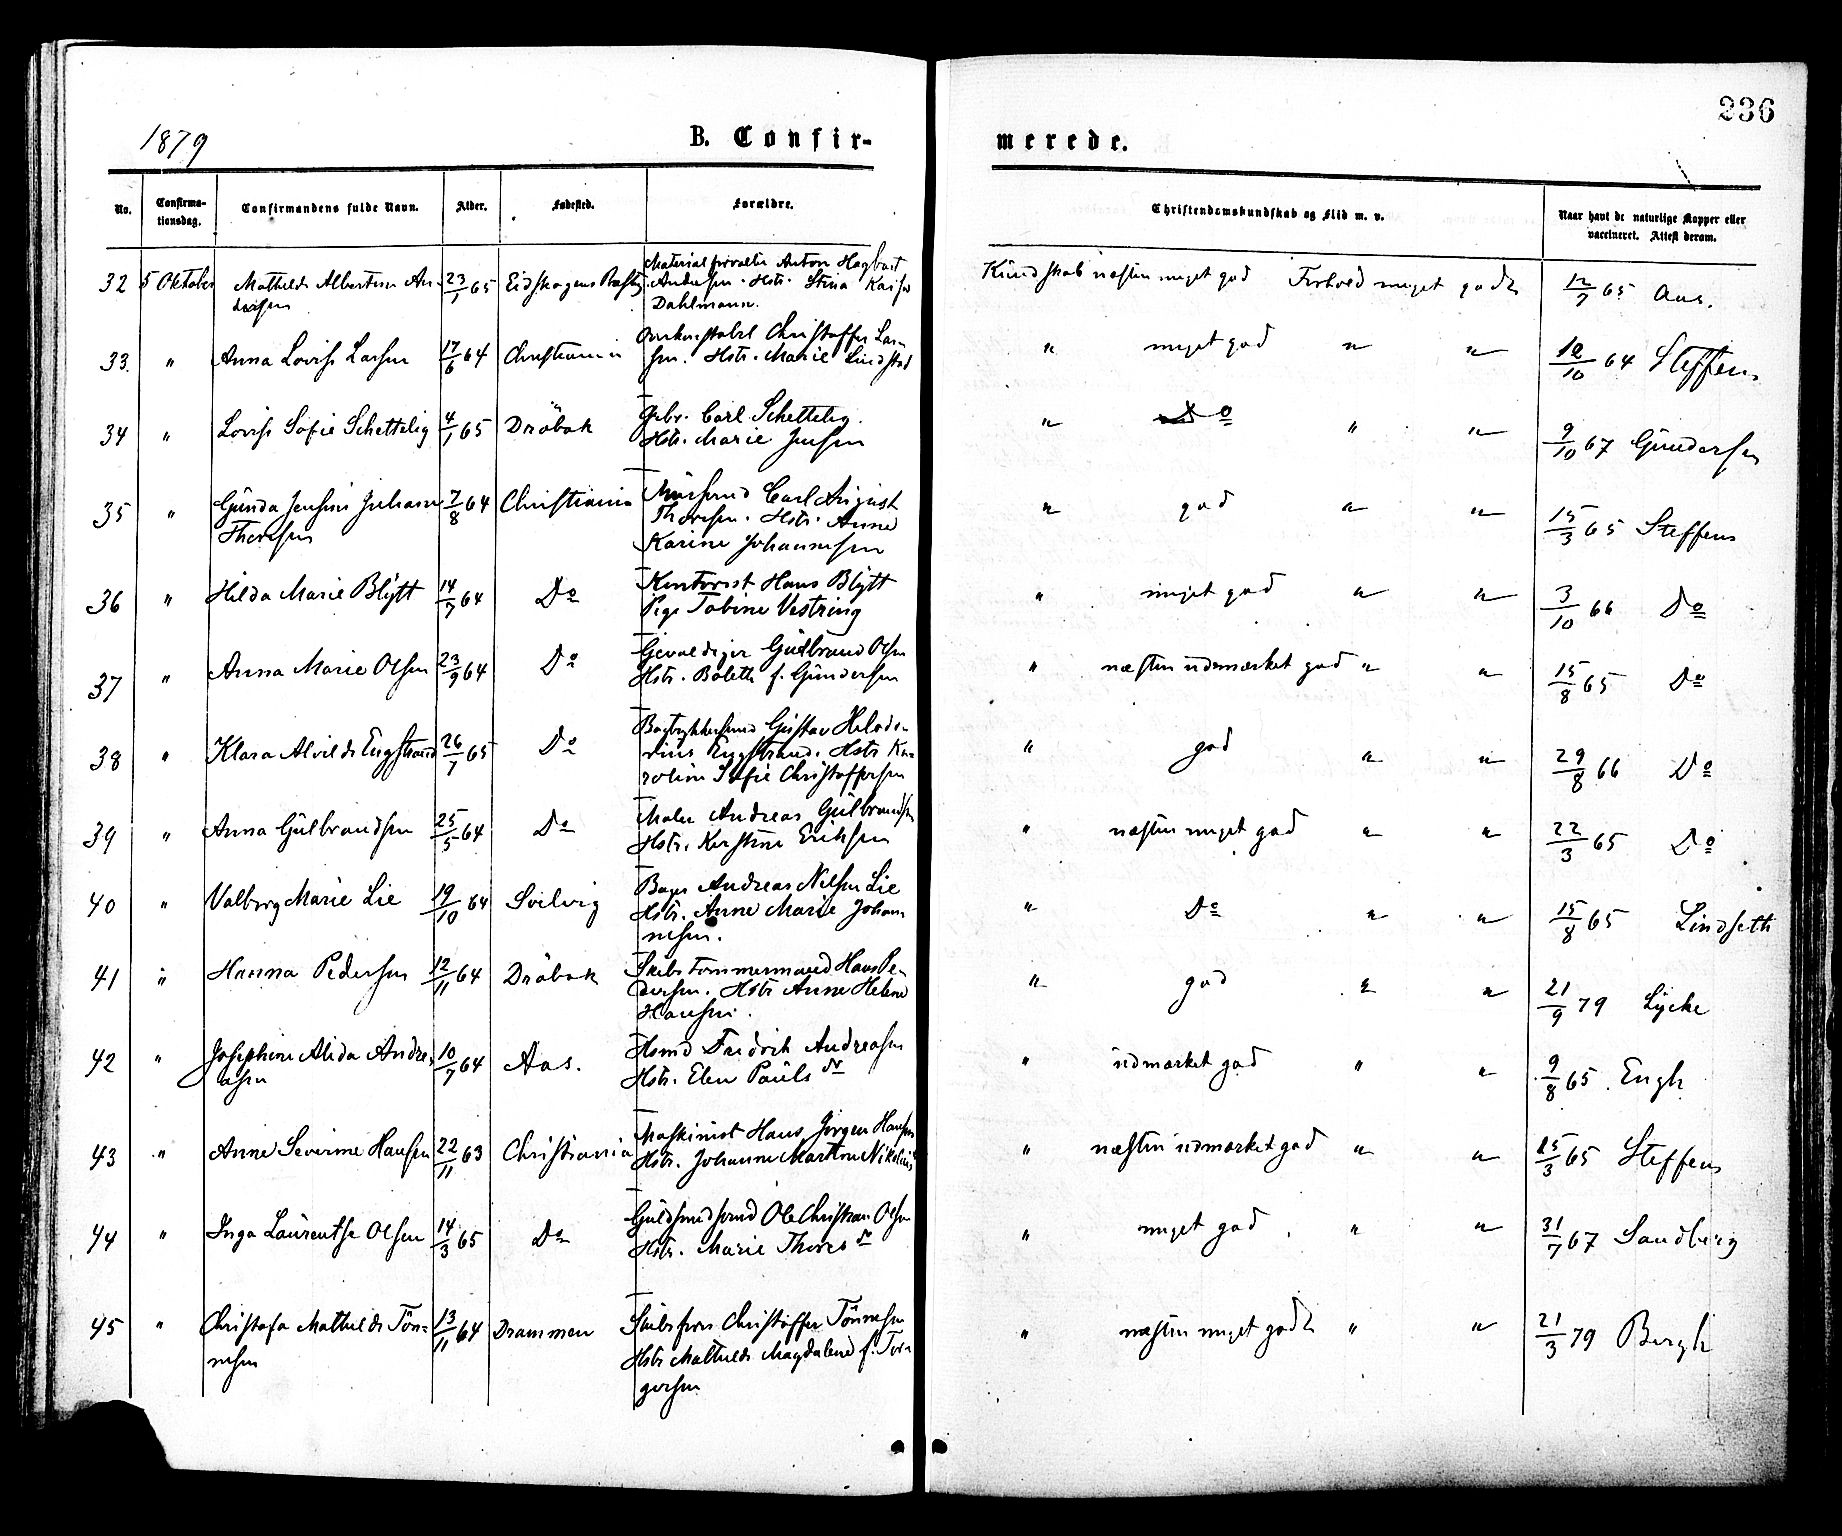 236
1879
B. Confir-
merede.
No.
Confirma-
tionsdag.
Confirmandens fulde Navn.
Alder.
Fødested.
Forældre.
Christendomskundskab og Flid m. v.
Naar havt de naturlige Kopper eller
vaccineret. Attest derom.
32 5 Oktober Mathilde Albertine An- 23/1 65 Eidskogens Materialforvalter Anton Hagbart Kundskab næsten meget god Forhold meget godt 12/7 65 Aas.
dersen Andersen. Hstr. Stina Kaisa
Dahlmann.
33. " Anna Lovise Larsen 17/6 64 Christiania Christoffer Lar- " meget god " " 12/10 64 Steffens
sen. Hstr. Marie Lindstad
34 " Lovise Sofie Schettelig 4/1 65 Dröbak Carl Schettelig. " Do " " 9/10 67 Gundersen
Hstr. Marie Jensen
35 " Gunda Jensine Juliane 7/8 64 Christiania Mursvend Carl August " god " " 15/3 65 Steffens
Thoresen Thoresen. Hstr. Anne
Karine Johannesen
36 " Hilda Marie Blytt 14/7 64 Do Kontorist Hans Blytt " meget god " " 3/10 66 Do
Pige Tobine Vestring
37 " Anna Marie Olsen 23/9 64 Do Gevaldiger Gulbrand Olsen " næsten udmærket god " " 15/8 65 Do
Hstr. Bolette f. Gundersen
38 " Klara Alvilde Engstrand 26/1 65 Do Bogtrykkersvend Gustav Helode- " god " " 29/8 66 Do
rius Engstrand. Hstr Ka-
roline Sofie Christoffersen
39 " Anna Gulbrandsen 25/5 64 Do Maler Andreas Gulbrandsen " næsten meget god " " 22/3 65 Do
Hstr. Kerstine Eriksen
40 " Valborg Marie Lie 19/10 64 Svelvig Bager Andreas Nilsen Lie " Do " " 15/8 65 Lindseth
Hstr. Anne Marie Johan
nesen.
41 " Hanna Pedersen 12/11 64 Dröbak Skibstømmermand Hans Pe- " god " " 21/9 79 Lycke
dersen. Hstr Anne Helene
Hansen.
42 " Josephine Alida Andre- 10/7 64 Aas. Hsmd Fredrik Andreasen " udmærket god " " 9/8 65. Engh
asen Hstr. Elen Pauls dr
43 " Anne Severine Hansen 22/11 63 Christiania Maskinist Hans Jørgen Hansen " næsten udmærket god " " 15/3 65 Steffens
Hstr. Johanne Martine Nikolais
44 " Inga Laurentse Olsen 14/3 65 Do Guldsmedsvend Ole Christian Olsen " meget god " " 31/7 67 Sandberg
Hstr. Marie Thores dr
45 " Christofa Mathilde Tön- 13/11 64 Drammen Skibsfører Christoffer Tönnesen " næsten meget godt " " 21/3 79 Bergh
nesen Hstr Mathilde Magdalene f. Tor-
gersen